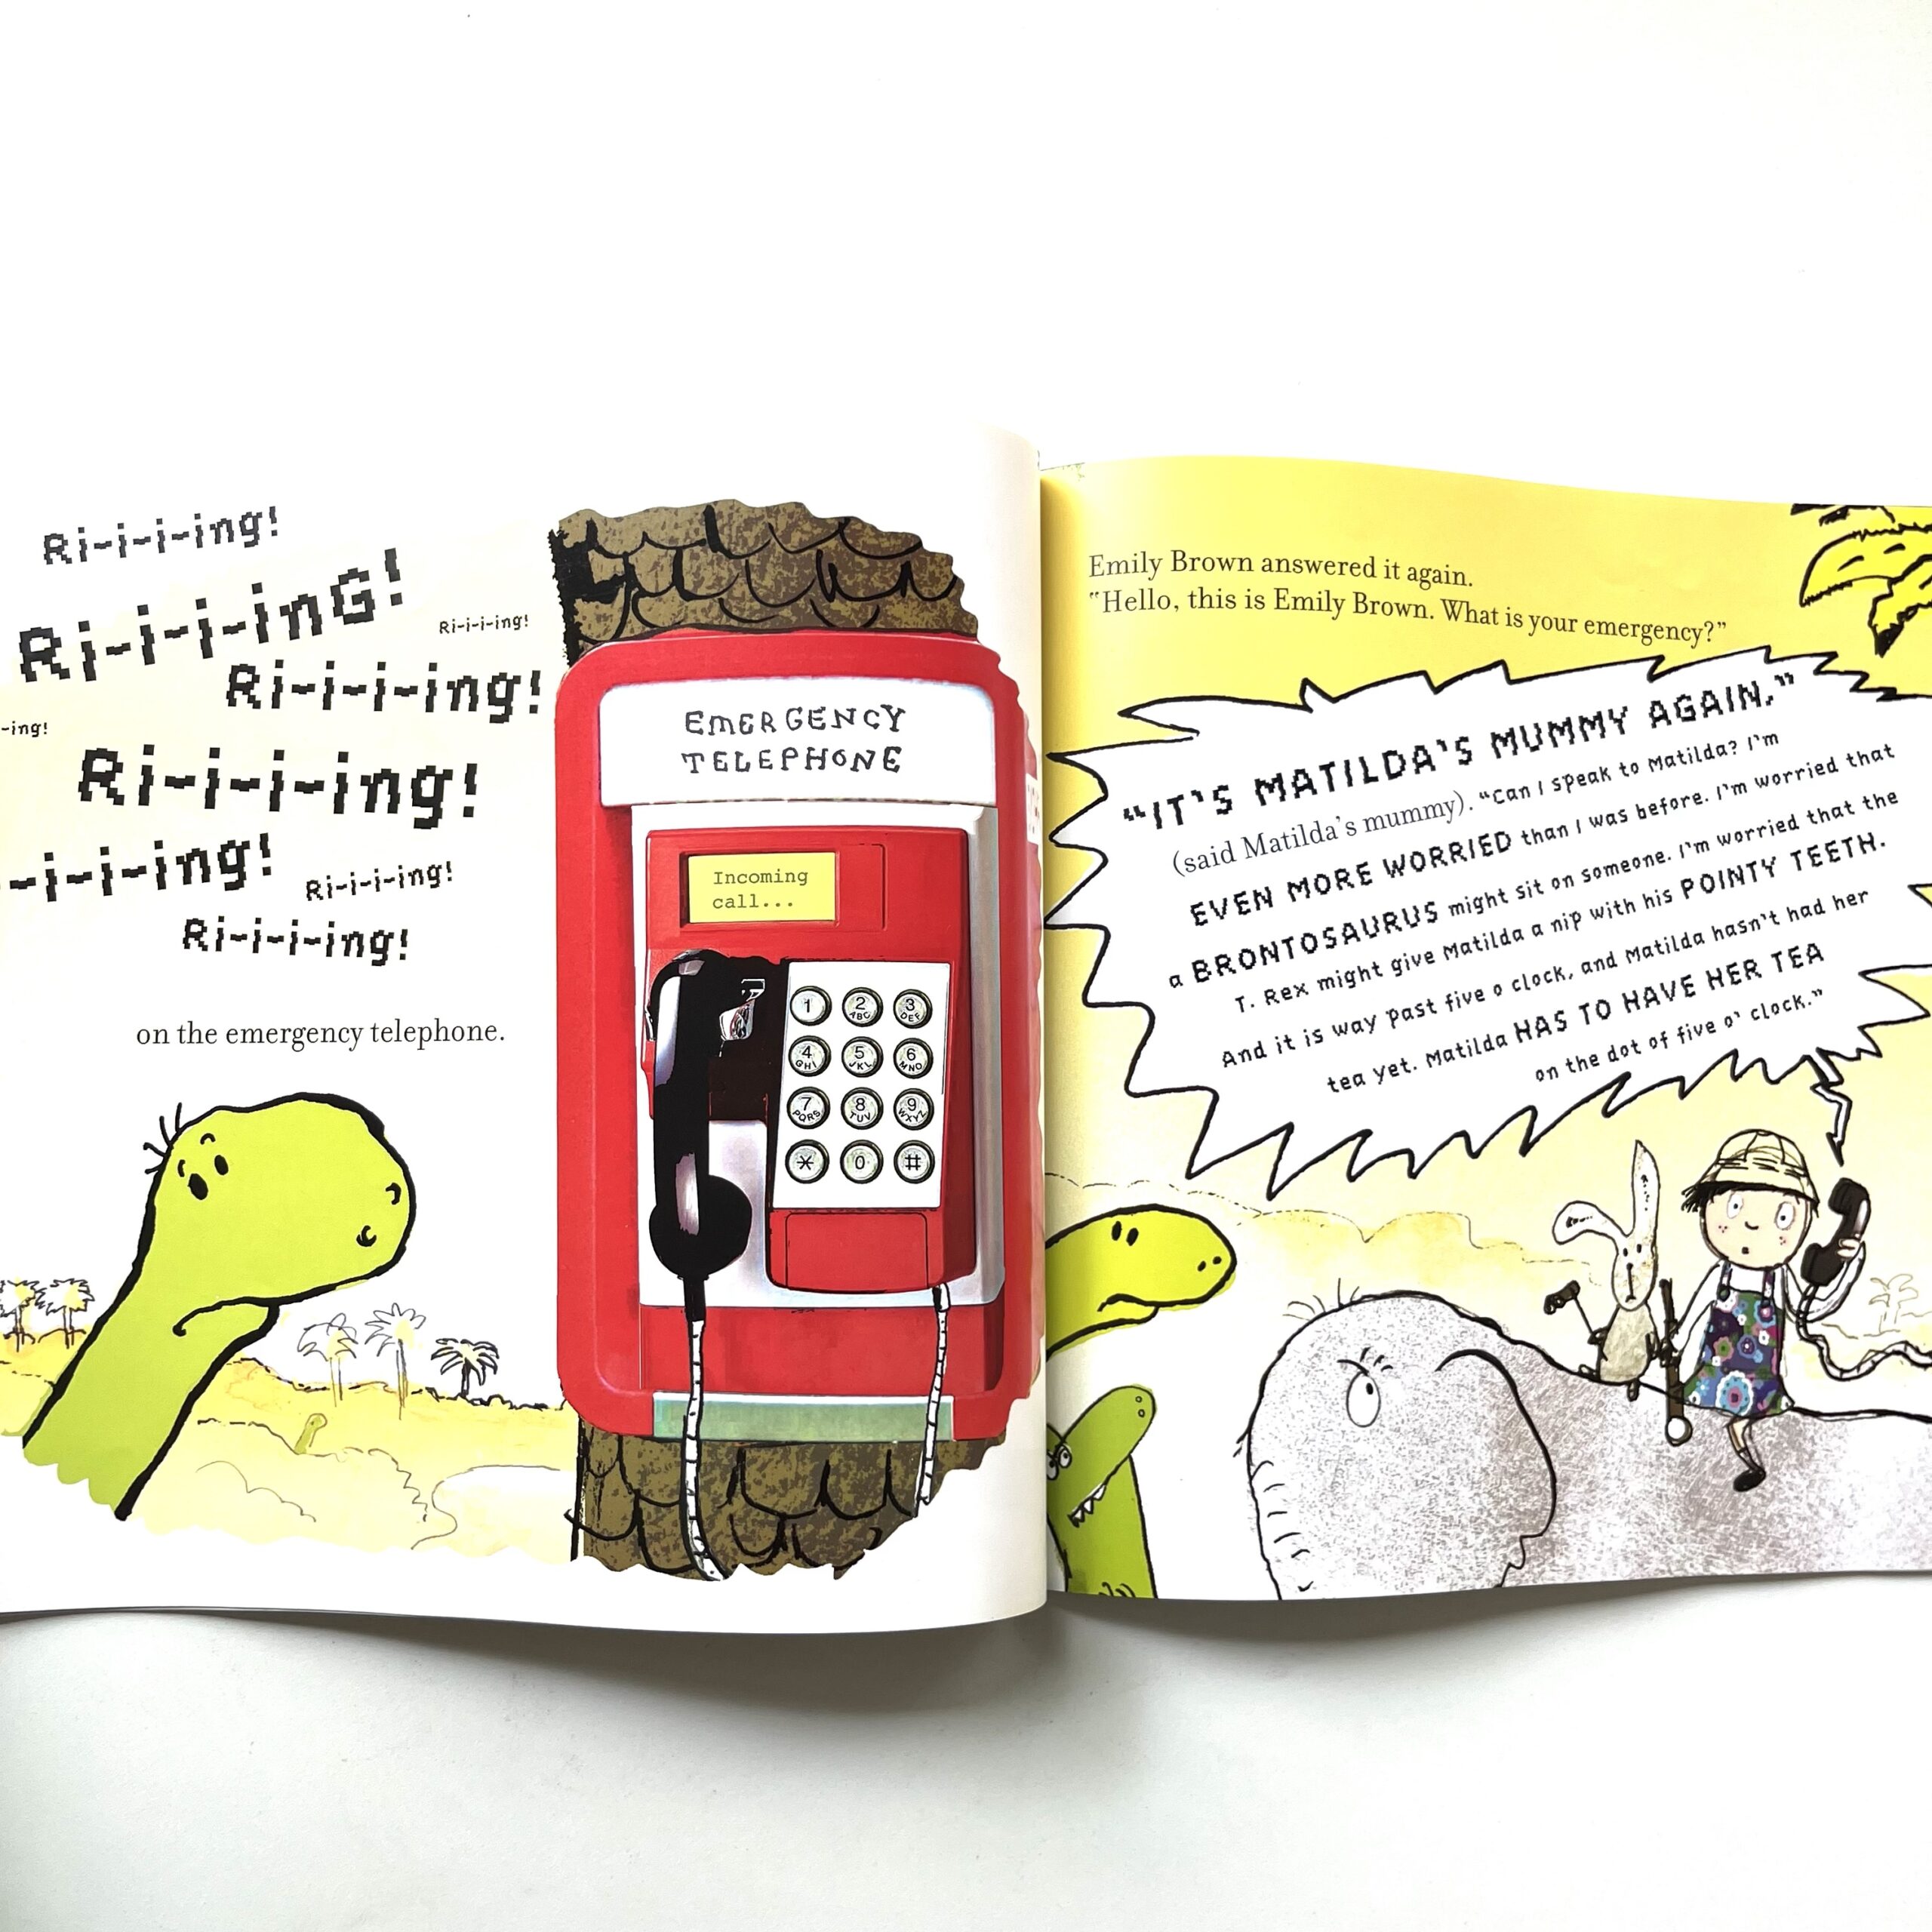 Ri-i-i-ing!
Ri-i-i-inG!
Ri-i-i-ing!
Ri-i-i-ing!
-ing!
Ri-i-i-ing!
-i-i-ing!
Ri-i-i-ing!
Ri-i-i-ing!
on the emergency telephone.
EMERGENCY
TELEPHONE
Incoming
call...
1
2
ABC
3
DEF
4
GHI
5
JKL
6
MNO
7
PQRS
8
TUV
9
WXYZ
*
0
#
Emily Brown answered it again.
“Hello, this is Emily Brown. What is your emergency?”
“IT’S MATILDA’S MUMMY AGAIN,”
(said Matilda’s mummy). “Can I speak to Matilda? I’m
EVEN MORE WORRIED than I was before. I’m worried that
a BRONTOSAURUS might sit on someone. I’m worried that the
T. Rex might give Matilda a nip with his POINTY TEETH.
And it is way past five o clock, and Matilda hasn’t had her
tea yet. Matilda HAS TO HAVE HER TEA
on the dot of five o’ clock.”